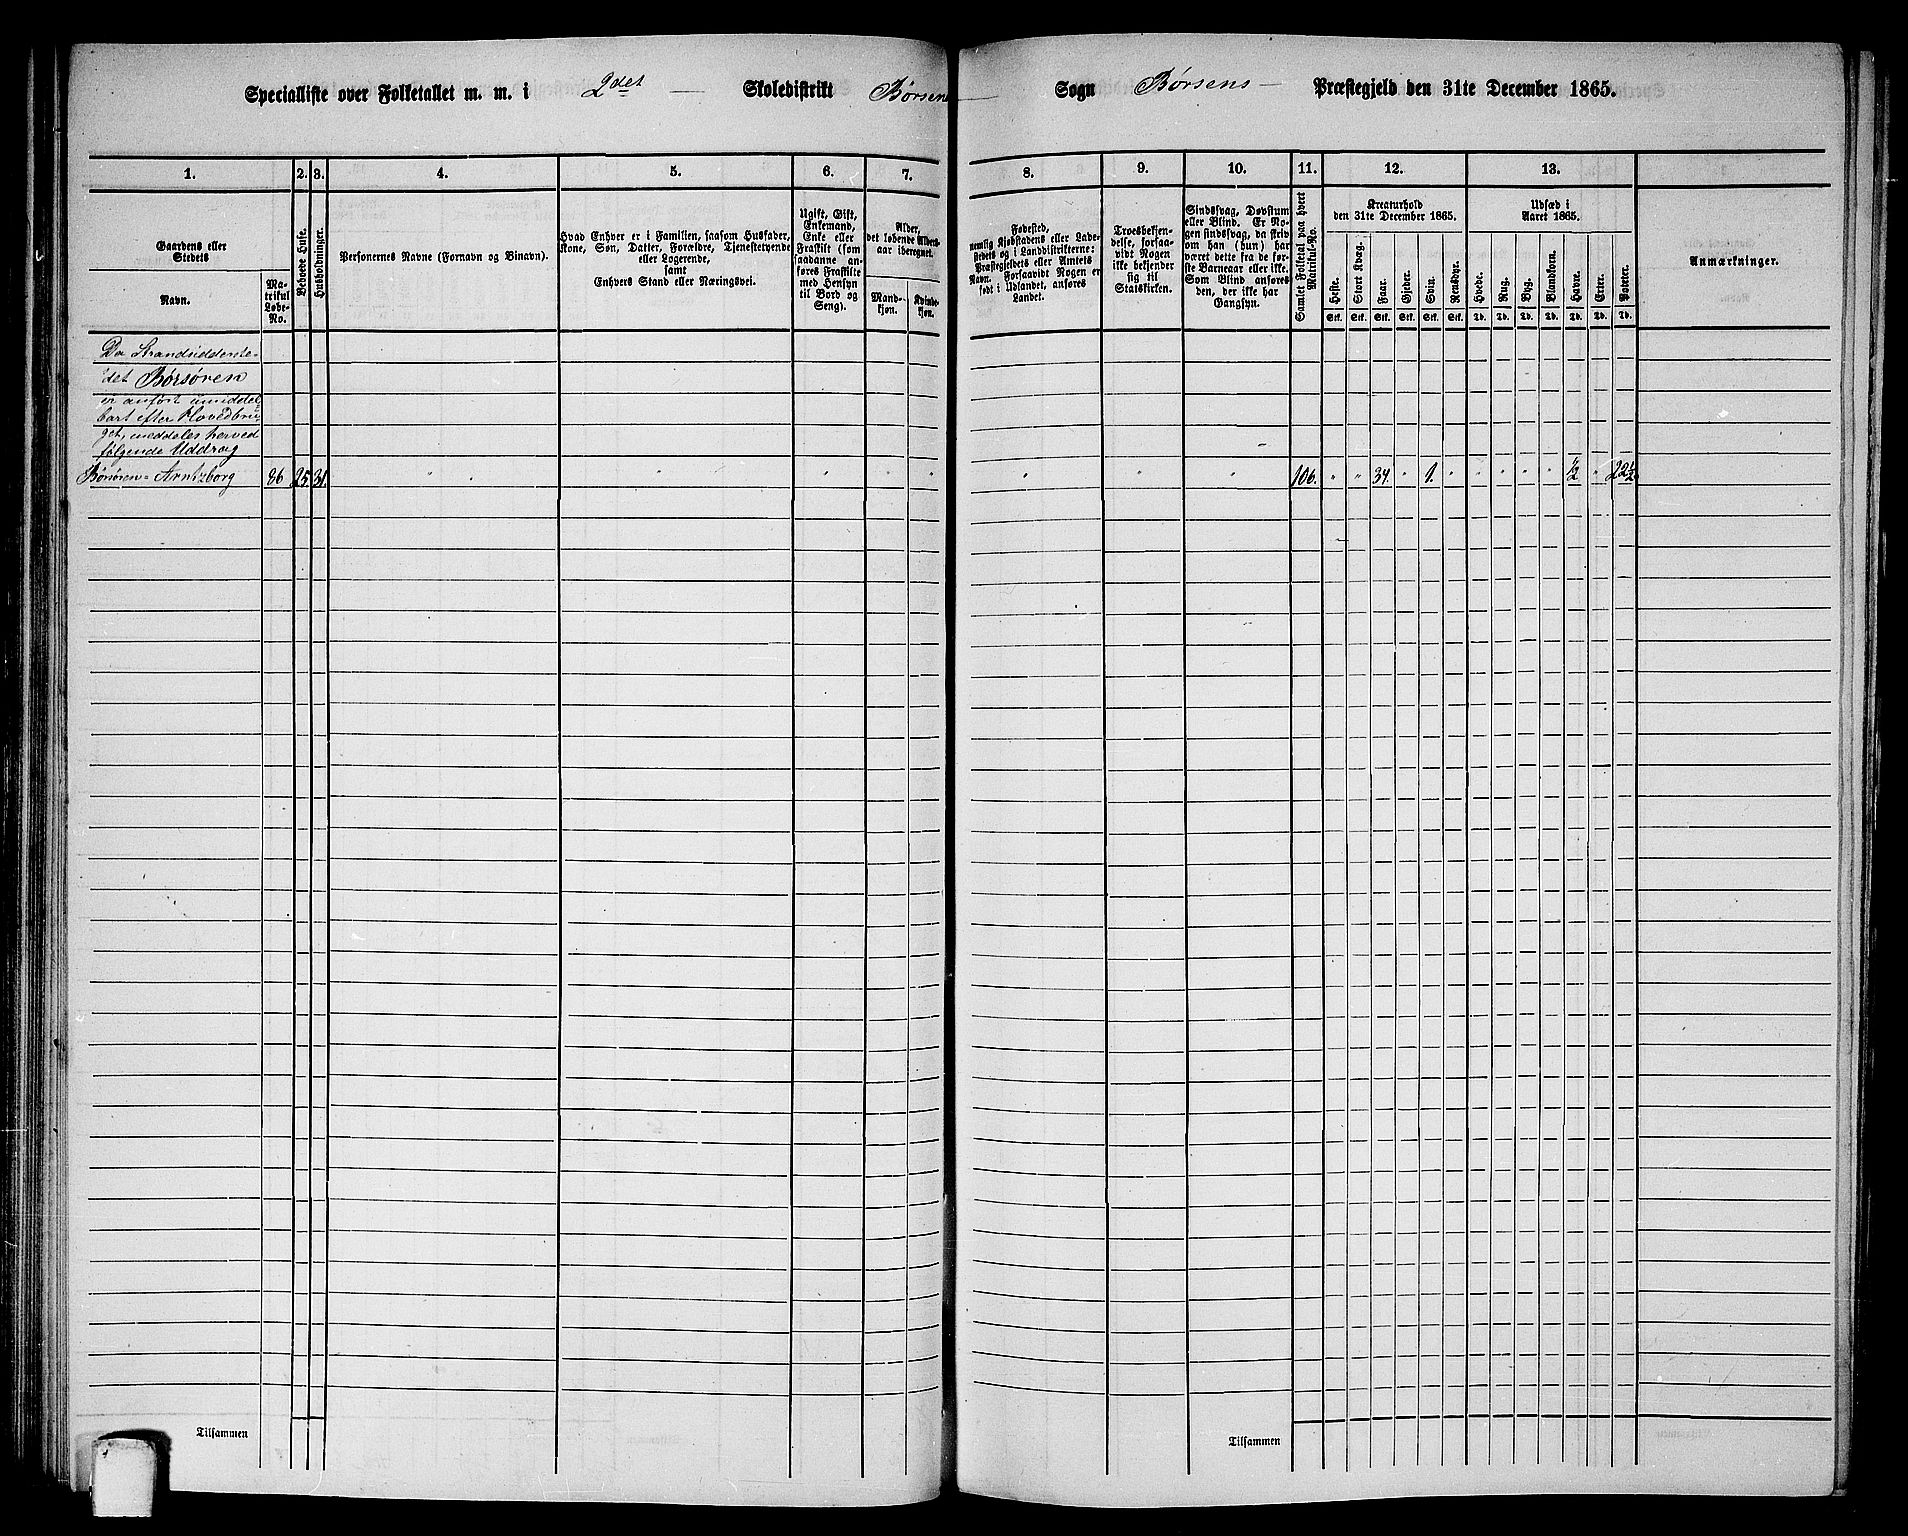 Specialliste over Folketallet m. m. i 2det Skoledistrikt Børsens Sogn Børsens Præstegjeld den 31te December 1865.
1. 2. 3. 4. 5. 6. 7. 8. 9. 10. 11. 12. 13.
Gaardens eller
Stedets
Navn.
Ma-
trikul
Løbe-
No.
Beboede Huse.
Husholdninger.
Personernes Navne (Fornavn og Binavn).
Hvad Enhver er i Familien, saasom Husfader,
Kone, Søn, Datter, Forældre, Tjenestetyende
eller Logerende,
samt
Enhvers Stand eller Næringsvei.
Ugift, Gift,
Enkemand,
Enke eller
Fraskilt (som
saadanne an-
føres Fraskilte
med Hensyn
til Bord og
Seng).
Alder,
det løbende Alders-
aar iberegnet.
Mand-
kjøn.
Kvinde-
kjøn.
Fødested,
nemlig Kjøbstadens eller Lade-
stedets og i Landdistrikterne:
Præstegjeldets eller Amtets
Navn. Forsaavidt Nogen er
født i Udlandet, anføres
Landet.
Troesbekjen-
delse, forsaa-
vidt Nogen
ikke bekjender
sig til
Statskirken.
Sindssvag, Døvstum
eller Blind. Er No-
gen sindssvag, da skriv
om han (hun) har
været dette fra de før-
ste Barneaar eller ikke.
Som Blind anføres
den, der ikke har
Gangsyn.
Samlet Folketal paa hvert
Matrikul-No.
Kreaturhold
den 31te December 1865.
Heste. Stort Kvæg. Faar. Gjeder. Svin. Rensdyr.
Stk. Stk. Stk. Stk. Stk. Stk.
Udsæd i
Aaret 1865.
Hvede. Rug. Byg. Blandkorn. Havre. Erter. Poteter.
Td. Td. Td. Td. Td. Td. Td.
Anmærkninger.
Da Strandsidderste-
det Børsøren
er anført umiddel
bart efter Hovedbru-
get, meddeles herved
følgende Uddrag
Børsøren=Arntzborg 86 25. 31. " " " " " " " " 106. " " 34. " 1. " " " " " ½ " 22½
Tilsammen
Tilsammen